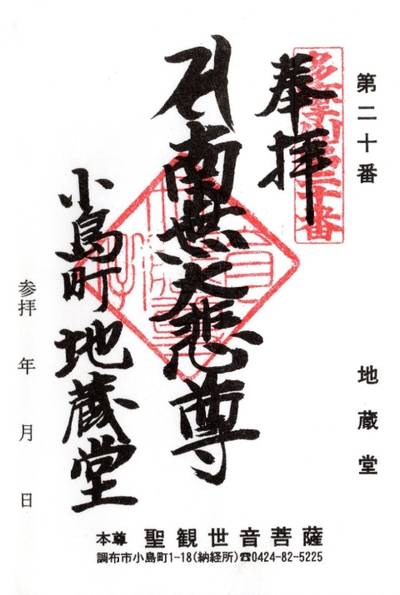 第二十番
地蔵堂
多摩川第二十番
奉拝
南無大悲尊
小島町地蔵堂
参拝 年 月 日
本尊 聖観世音菩薩
調布市小島町1-18(納経所)☎0424-82-5225